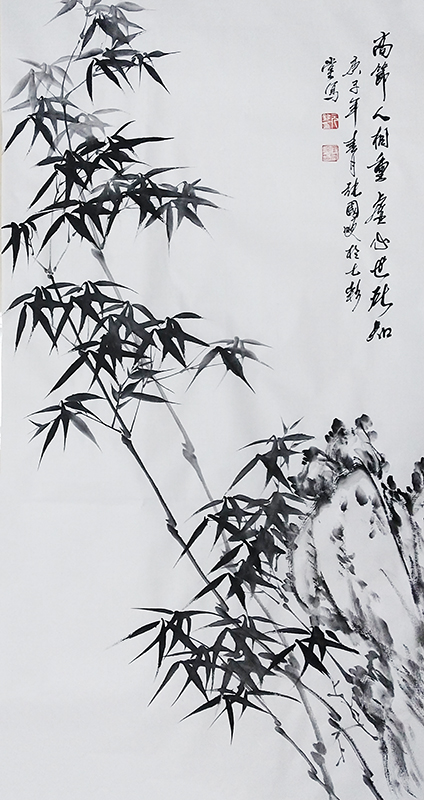 高節人相重虛心世所知
庚子年春月張國
堂寫